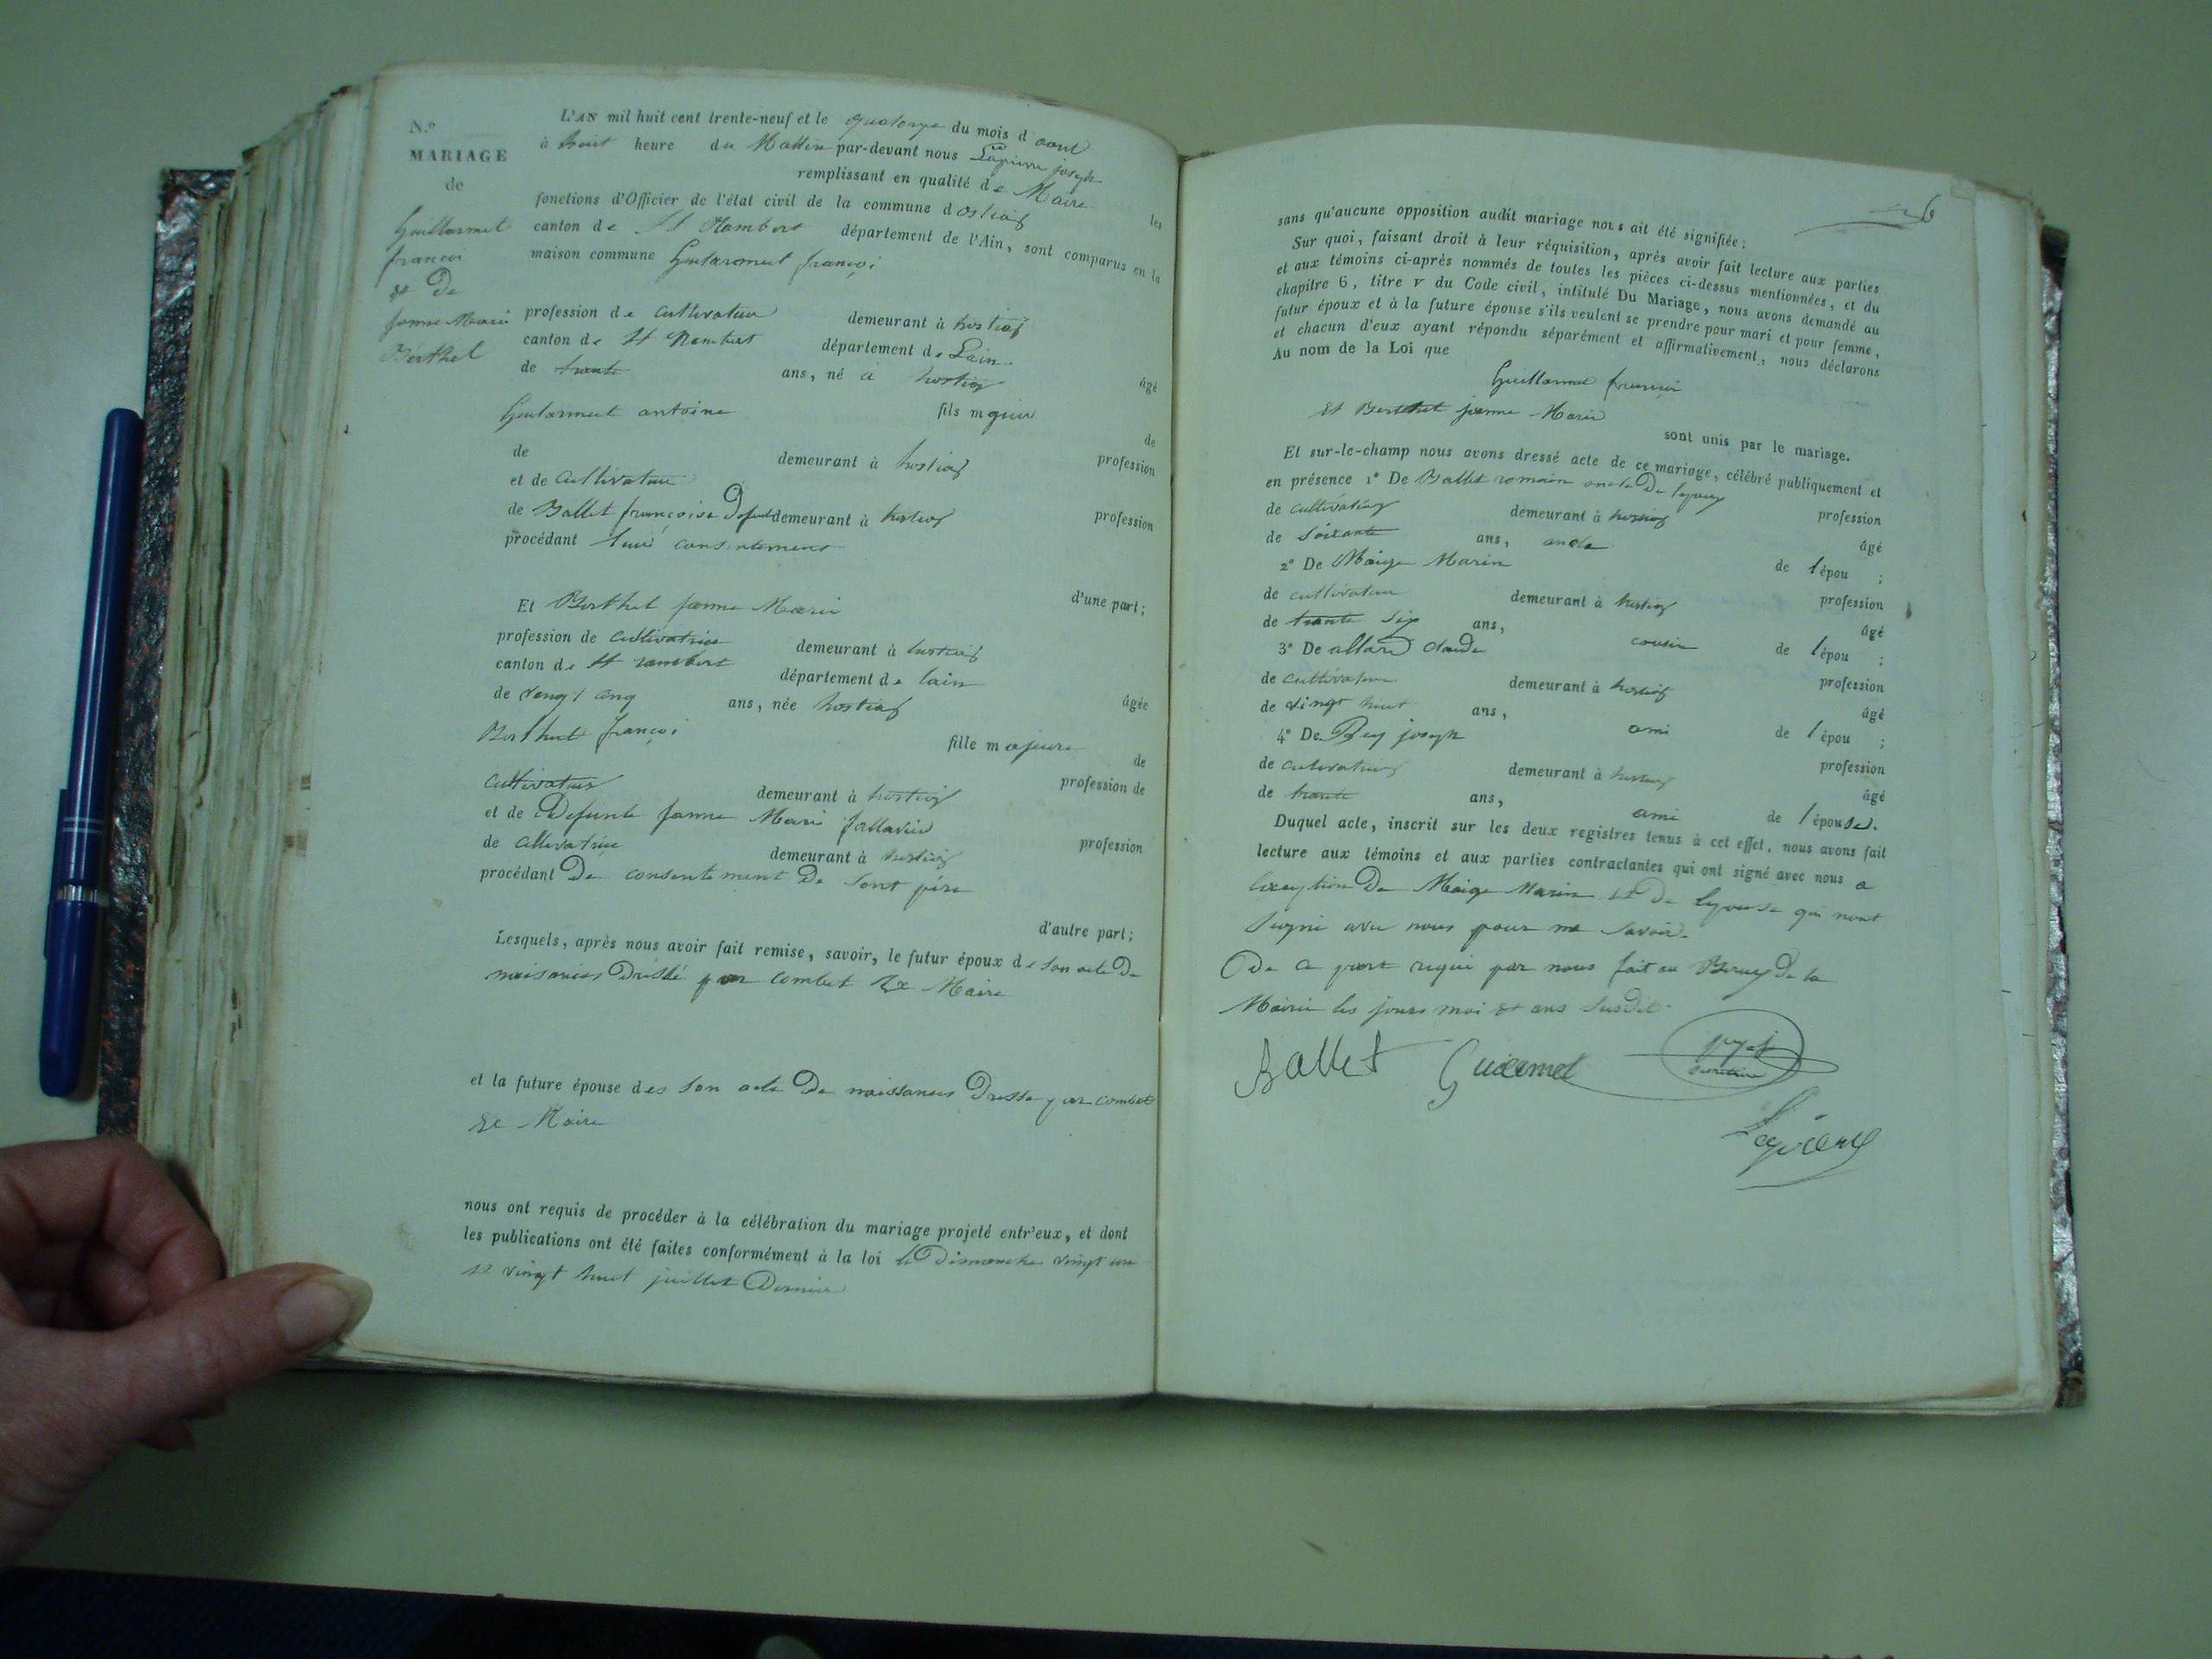 N.º
MARIAGE
de
Guillarmet
francoi
et De
janne Marie
Berthet
L'AN mil huit cent trente-neuf et le quatorze du mois d aout
à huit heure du Mattin par-devant nous Lapierre joseph
remplissant en qualité de Maire les
fonctions d'Officier de l'état civil de la commune d ostiaz
canton de St Rambert département de l'Ain, sont comparus en la
maison commune francoi
profession de cultivateur demeurant à hostiaz
canton de St Rambert département de Lain âgé
de trante ans, né à hostiaz
fils m
antoine de
de demeurant à hostiaz profession
et de cultivateur
de Ballet françoise demeurant à hostiaz profession
procédant consentement
d'une part;
Et Berthet janne Marie
profession de cultivatrice demeurant à hostiaz
canton de st rambert département de lain âgée
de vengt cinq ans, née hostiaz
fille majeure de
Berthet françoi profession de
cultivateur demeurant à hostiaz
et de Defunte janne Marie profession
de demeurant à hostiaz
procédant De consentement De sont père
d'autre part;
Lesquels, après nous avoir fait remise, savoir, le futur époux de son acte De
naisances Dréssé par combet Maire
et la future épouse des son acte De naissances Dressé par combet
Maire
nous ont requis de procéder à la célébration du mariage projeté entr'eux, et dont
les publications ont été faites conformément à la loi le Dimanche vingt un
et vingt huit juillet Dernier
6
sans qu'aucune opposition audit mariage nous ait été signifiée;
Sur quoi, faisant droit à leur réquisition, après avoir fait lecture aux parties
et aux témoins ci-après nommés de toutes les pièces ci-dessus mentionnées, et du
chapitre 6, titre v du Code civil, intitulé Du Mariage, nous avons demandé au
futur époux et à la future épouse s'ils veulent se prendre pour mari et pour femme,
et chacun d'eux ayant répondu séparément et affirmativement, nous déclarons
Au nom de la Loi que
Guillarmet francoi
et Berthet janne Marie
sont unis par le mariage.
Et sur-le-champ nous avons dressé acte de ce mariage, célébré publiquement et
en présence 1º De Ballet romain oncle De lepoux profession
de demeurant à hostiaz âgé
de soixante ans, oncle de l épou ;
2º De Maige Marin profession
de cultivateur demeurant à hostiaz âgé
de trante six ans, cousin de l épou ;
3º De allard claude profession
de cultivateur demeurant à hostiaz âgé
de vingt huit ans, ami de l épou ;
4º De joseph profession
de demeurant à hostiaz âgé
de trante ans, ami de l épouse.
Duquel acte, inscrit sur les deux registres tenus à cet effet, nous avons fait
lecture aux témoins et aux parties contractantes qui ont signé avec nous a
lexception De Maige Marin et De lepouse qui nont
signé avec nous pour ne savoir.
De ce par nous fait au De la
Mairie les jours moi et ans susdit
Ballet
Lapierre